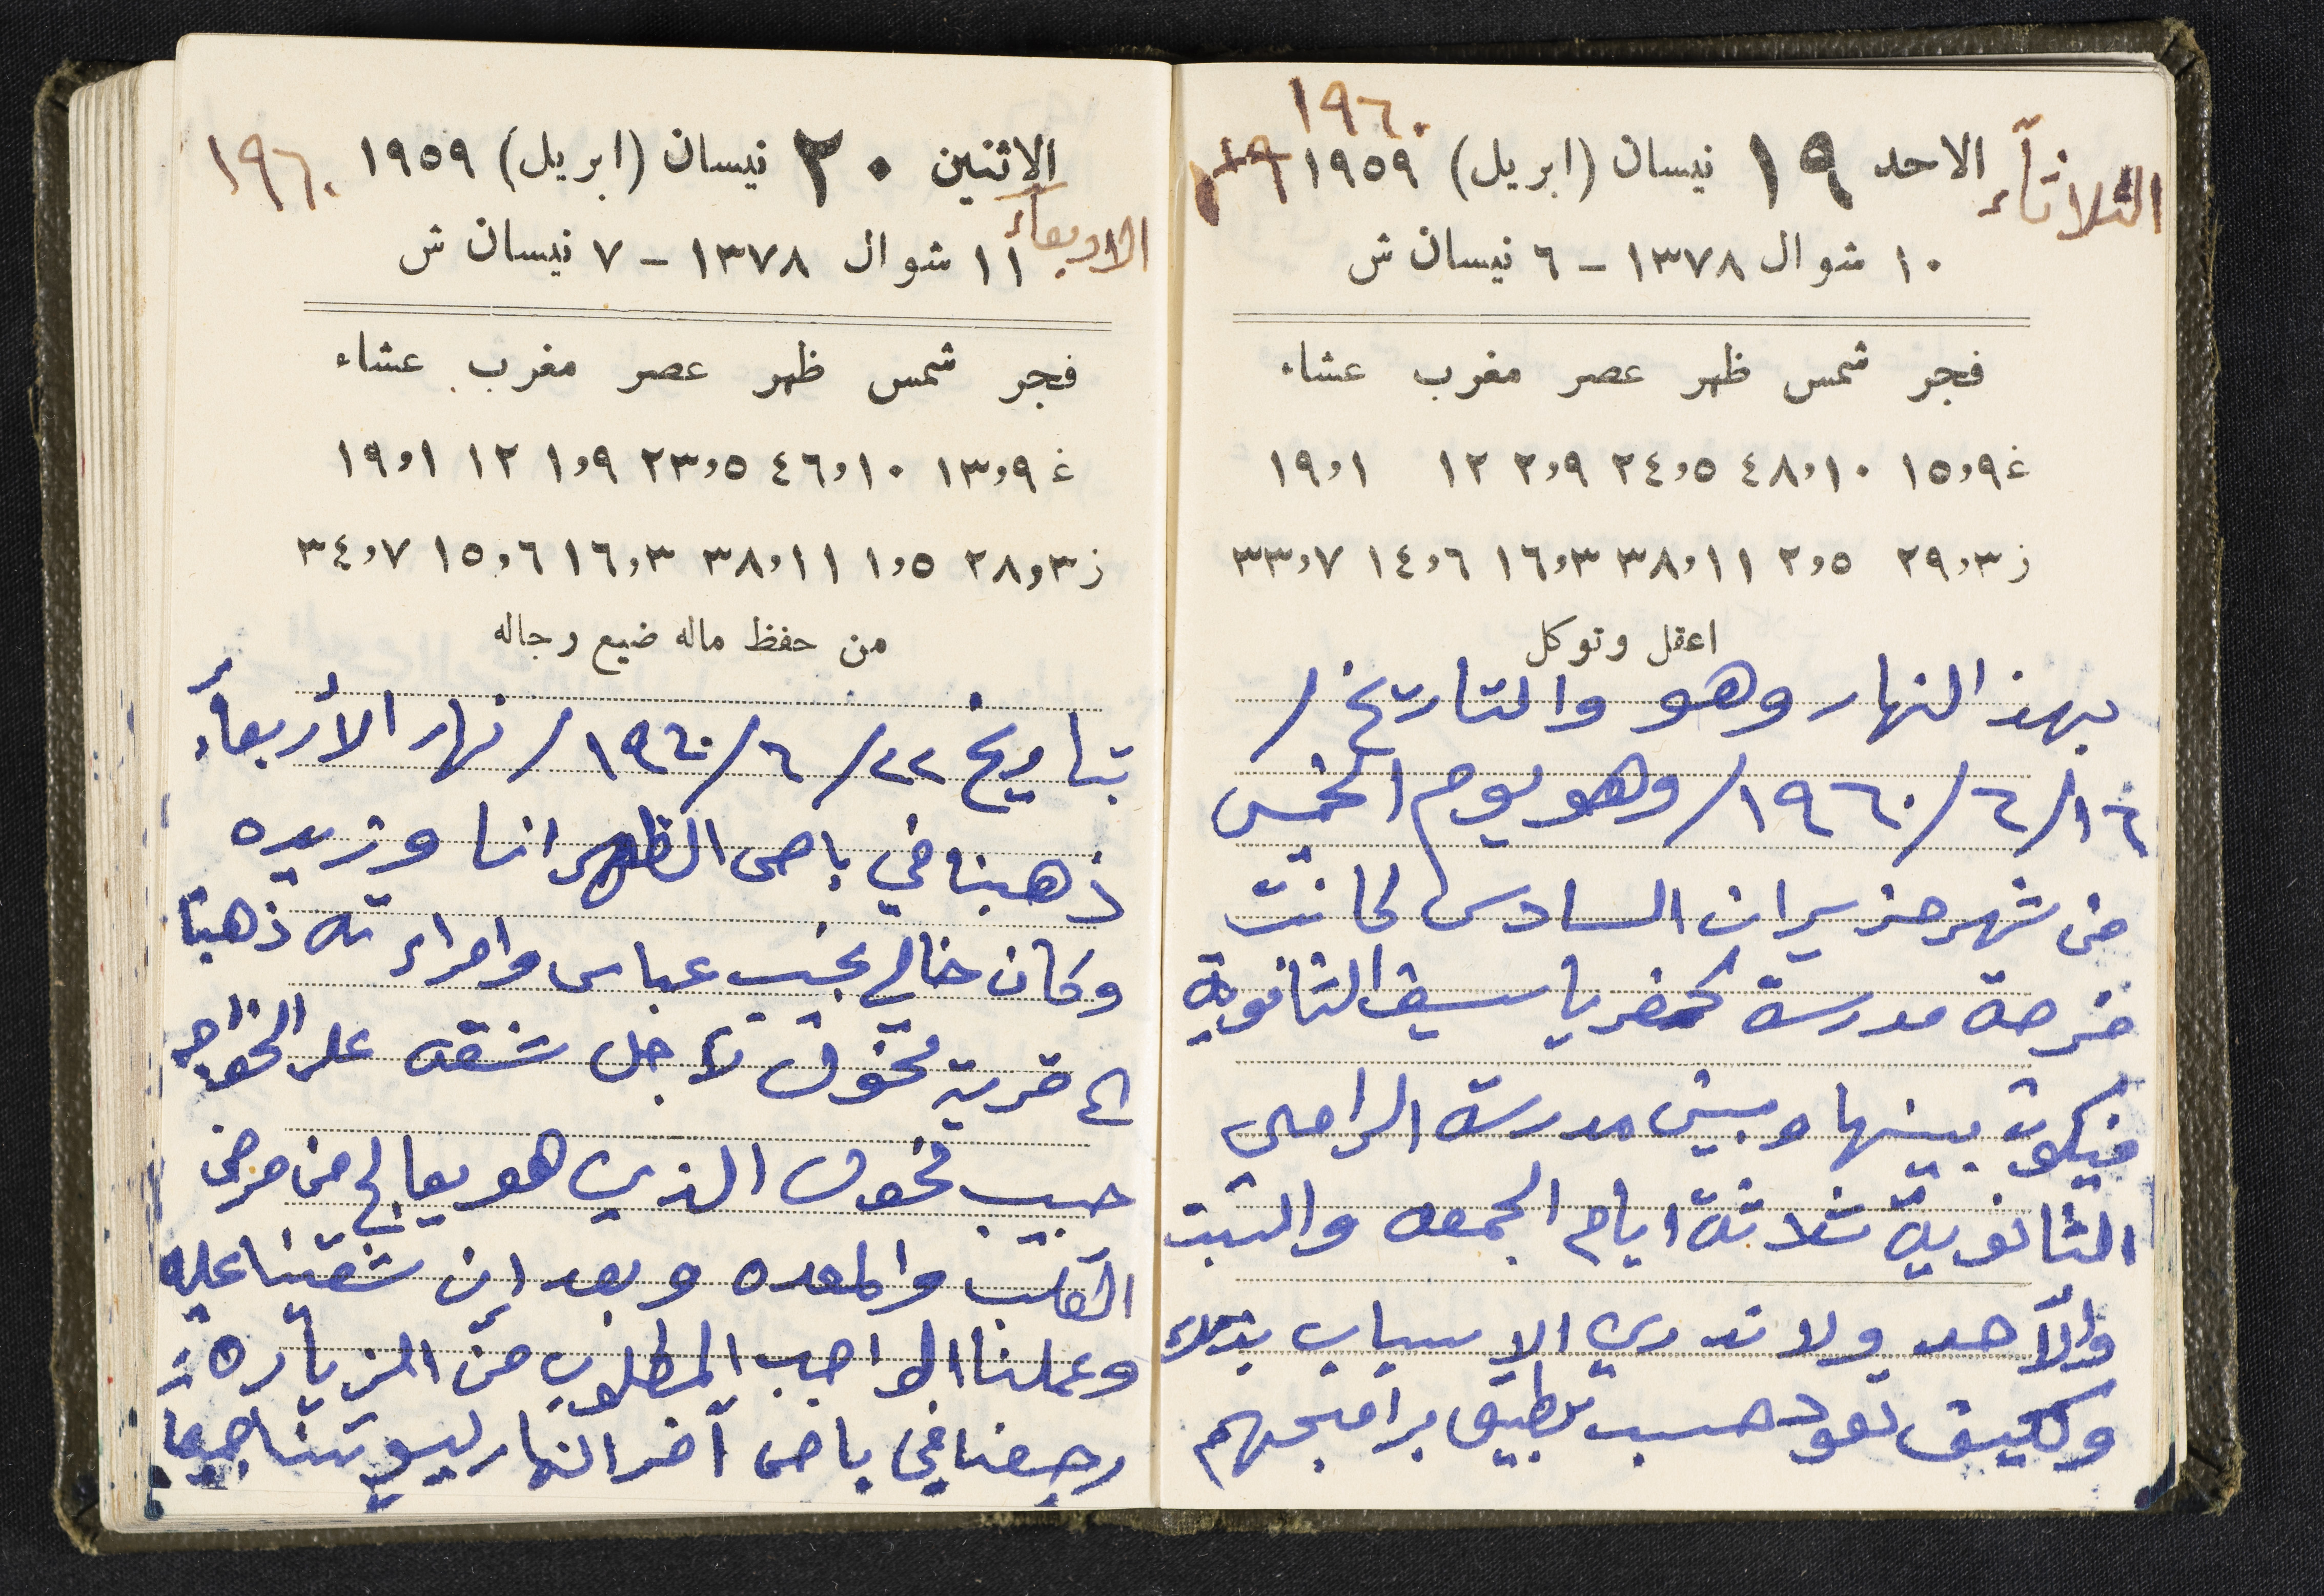 ١٩٦٠
الثلاثآء الاحد ١٩ نيسان (ابريل) ١٩٥٩
١٠ شوال ١٣٧٨ - ٦ نيسان ش
فجر شمس ظهر عصر مغرب عشاء
غ ١٥،٩ ٤٨،١٠ ٢٤،٥ ٢،٩ ١٢ ١٩،١
ز ٢٩،٣ ٢،٥ ٣٨،١١ ١٦،٣ ١٤،٦ ٣٣،٧
اعقل وتوكل
بهذ النهار وهو والتاريخ /
١٦/٦/١٩٦٠/ وهو يوم الخميس
من شهر حزيران السادس كانت
فرصة مدرسة كفر ياسيف الثانوية
فيكون بينها وبين مدرسة الرامي
الثانوية ثلاثة ايام الجمعه والسبت
والأحد ولا ندري الاسباب بذلك
وكيف تعود حسب تطبيق برامجهم
الاثنين ٢٠ نيسان (ابريل) ١٩٥٩ ١٩٦٠
الاربعآء
١١ شوال ١٣٧٨ - ٧ نيسان ش
فجر شمس ظهر عصر مغرب عشاء
غ ١٣،٩ ٤٦،١٠ ٢٣،٥ ١،٩ ١٢ ١٩،١
ز ٢٨،٣ ١،٥ ٣٨،١١ ١٦،٣ ١٥،٦ ٣٤،٧
من حفظ ماله ضيع رجاله
بتاريخ ٢٢/٦/١٩٦٠/ نهار الأربعاء
ذهبنا في باص الظهر انا وزيده
وكان خالي نجيب عباس وامراءته ذهبنا
الى قرية فحول لأجل شقة على الخواجه
حبيب فحول الذي هو يعالج من مرض
القلب والمعده وبعد إن شقينا عليه
وعملنا الواجب المطلوب من الزياره
رجعنا في باص آخر النهار لبيوتنا جميعا